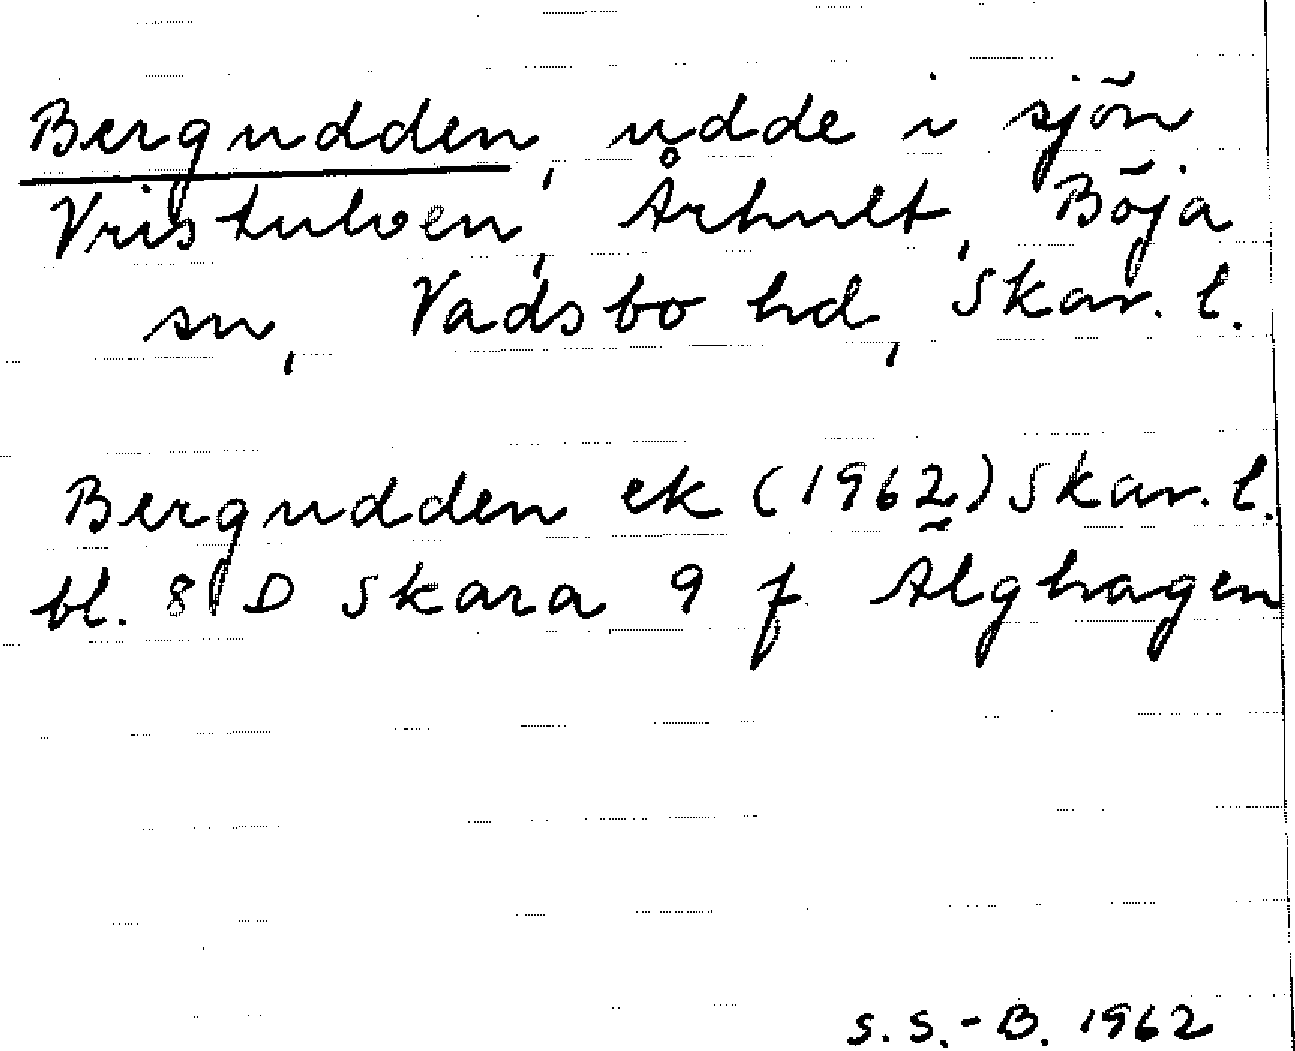 Bergudden, udde i sjön
Vristulven, Århult, Böja
sn, Vadsbo hd, Skar. l.
Bergudden ek (1962) Skar. l.
bl. 8 D Skara 9 f Älghagen
S.S.-B. 1962